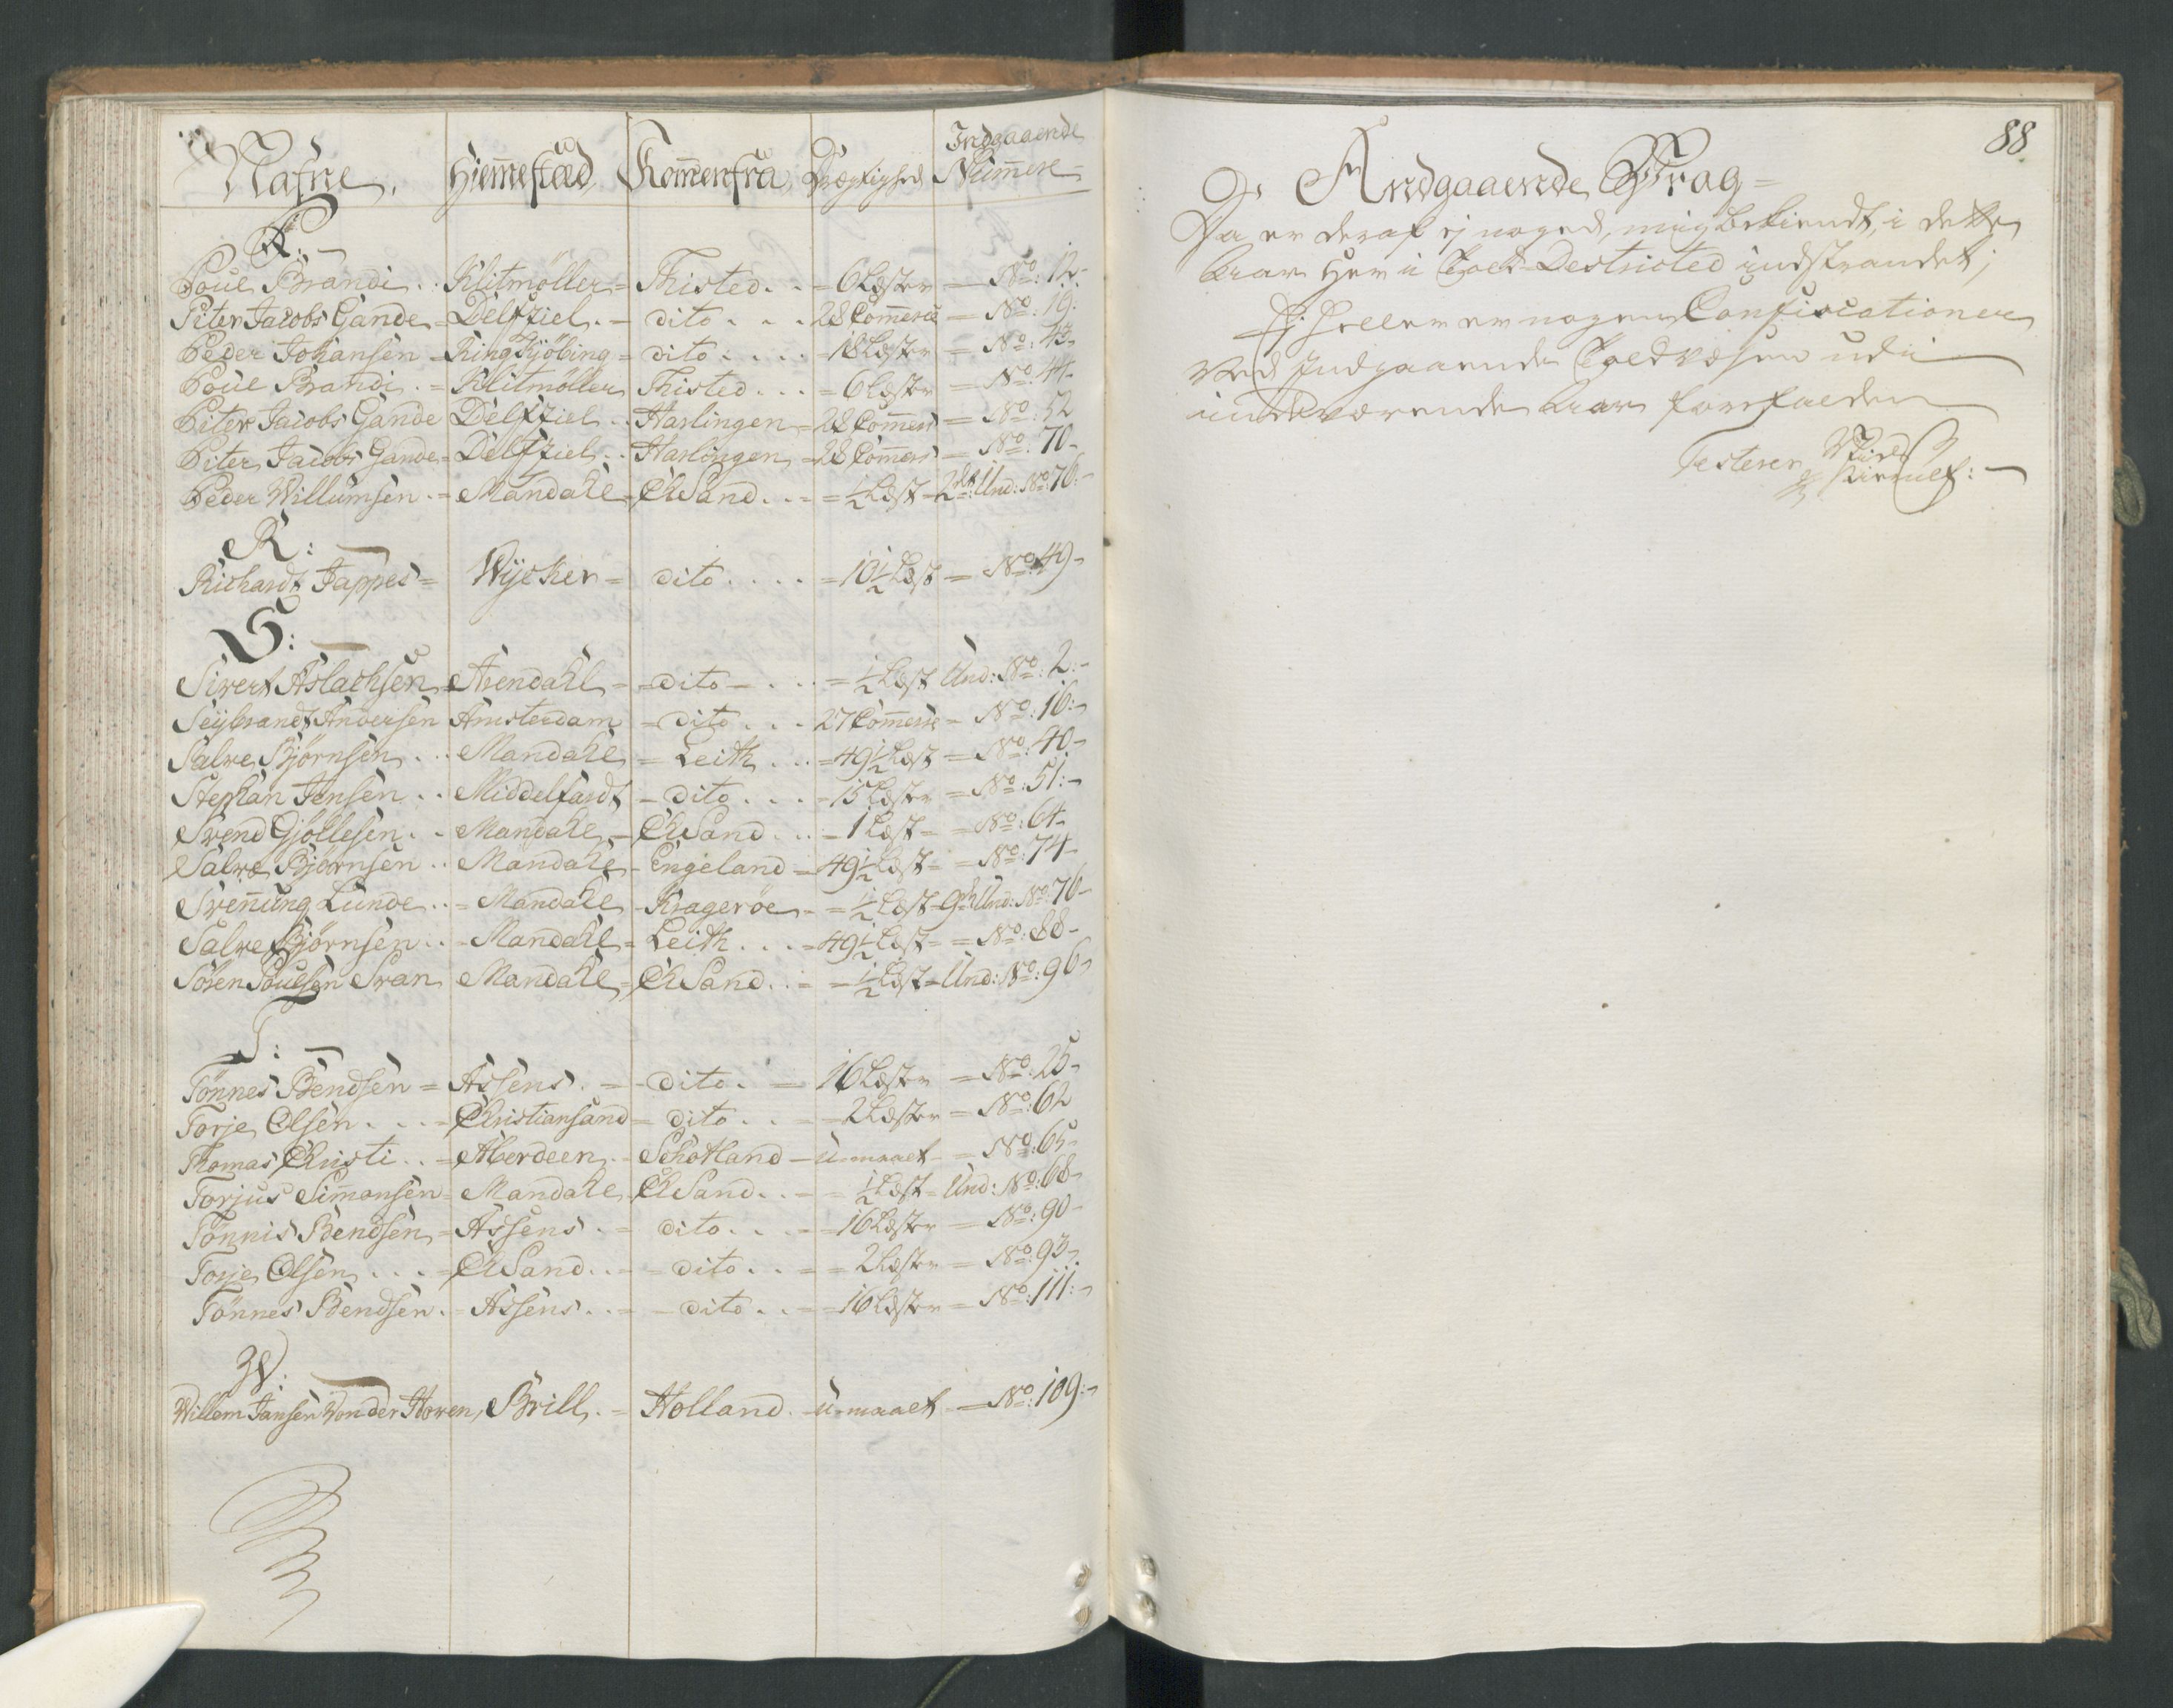 Nafne. Hiem̄estæd Kom̄enfra Drægtighed Indgaaende Num̄ere
P:
Poul Brandi .. Klitmøller = Thisted .. = 6 Læster = No: 12-
Piter Jacobs Gande = Delfziel .- dito ... 28 Com̄ercie = No: 19:
Peder Johansen = Ringkjøbing = dito .... = 18 Læster = No: 43-
Poul Brandi .. = Klitmøller Thisted ... = 6 Læster = No: 44-
Piter Jacobs Gande Delfziel .. Harlingen = 28 Com̄ers = No: 52
Piter Jacobs Gande = Delfziel .. Harlingen = 28 Com̄ers = No: 70-
Peder Willumsen .= Mandahl = ChSand ... = ½ Læst = 2det Und: No: 76:-
R:
Richardt Jappes = Wijcker = dito .... = 10½ Læst = No: 49-
S:
Sivert Aslachsen = Arendahl = dito - ... = ½ Læst Und: No: 2:-
Seijbrandt Andersen Amsterdam = dito ... 27 Com̄ercie = No: 16:-
Salve Bjørnsen ... Mandahl = Leith ... = 49½ Læst = No: 40-
Stephan Jensen .. Middelfardt - dito .... = 15 Læster = No: 51:-
Svend Gjøllesen .. Mandahl = ChSand ... = 1 Læst = = No: 64-
Salve Bjørnsen .. Mandahl - Engeland = 49½ Læst = = No: 74-
Svennung Lunde .. = Mandahl - Kragerøe - = ½ Læst - 9de Und: No: 76-
Salve Bjørnsen .. = Mandahl = Leith ... = 49½ Læst = = No: 88-
Søren Poulsen Svan Mandahl = ChSand .. = = ½ Læst = Und: No: 96-
T:
Tønnes Bendsen = Assens .= dito . = 16 Læster = No: 25-
Torje Olsen ...= Christiansand = dito .. = 2 Læster = No: 62
Thomas Christi .. = Aberdeen .. Schotland - umaalt - = No: 65-
Torjus Sim̄onsen = Mandahl - ChSand .. = ½ Læst = Und: No: 68-
Tønnis Bendsen = Assens .= dito ... = 16 Læster = No: 90-
Torje Olsen ... = ChSand .. = dito ... = 2 Læster = No: 93-
Tønnes Bendsen .= Assens ..= - dito .. = 16 Læster = No: 111:-
W:
Willem Jansen Von der Hoven, Brill .= Holland - umaalt - = No: 109:-
88
Indgaaende Vrag =
Da er deraf ej noged, mig bekiendt, i dette
Aar her i Told-Destricted indstrandet;
Ej heller er nogen Confiscationer
ved Indgaaende Toldvæsen udi
indeværende Aar forefalden
Testerer